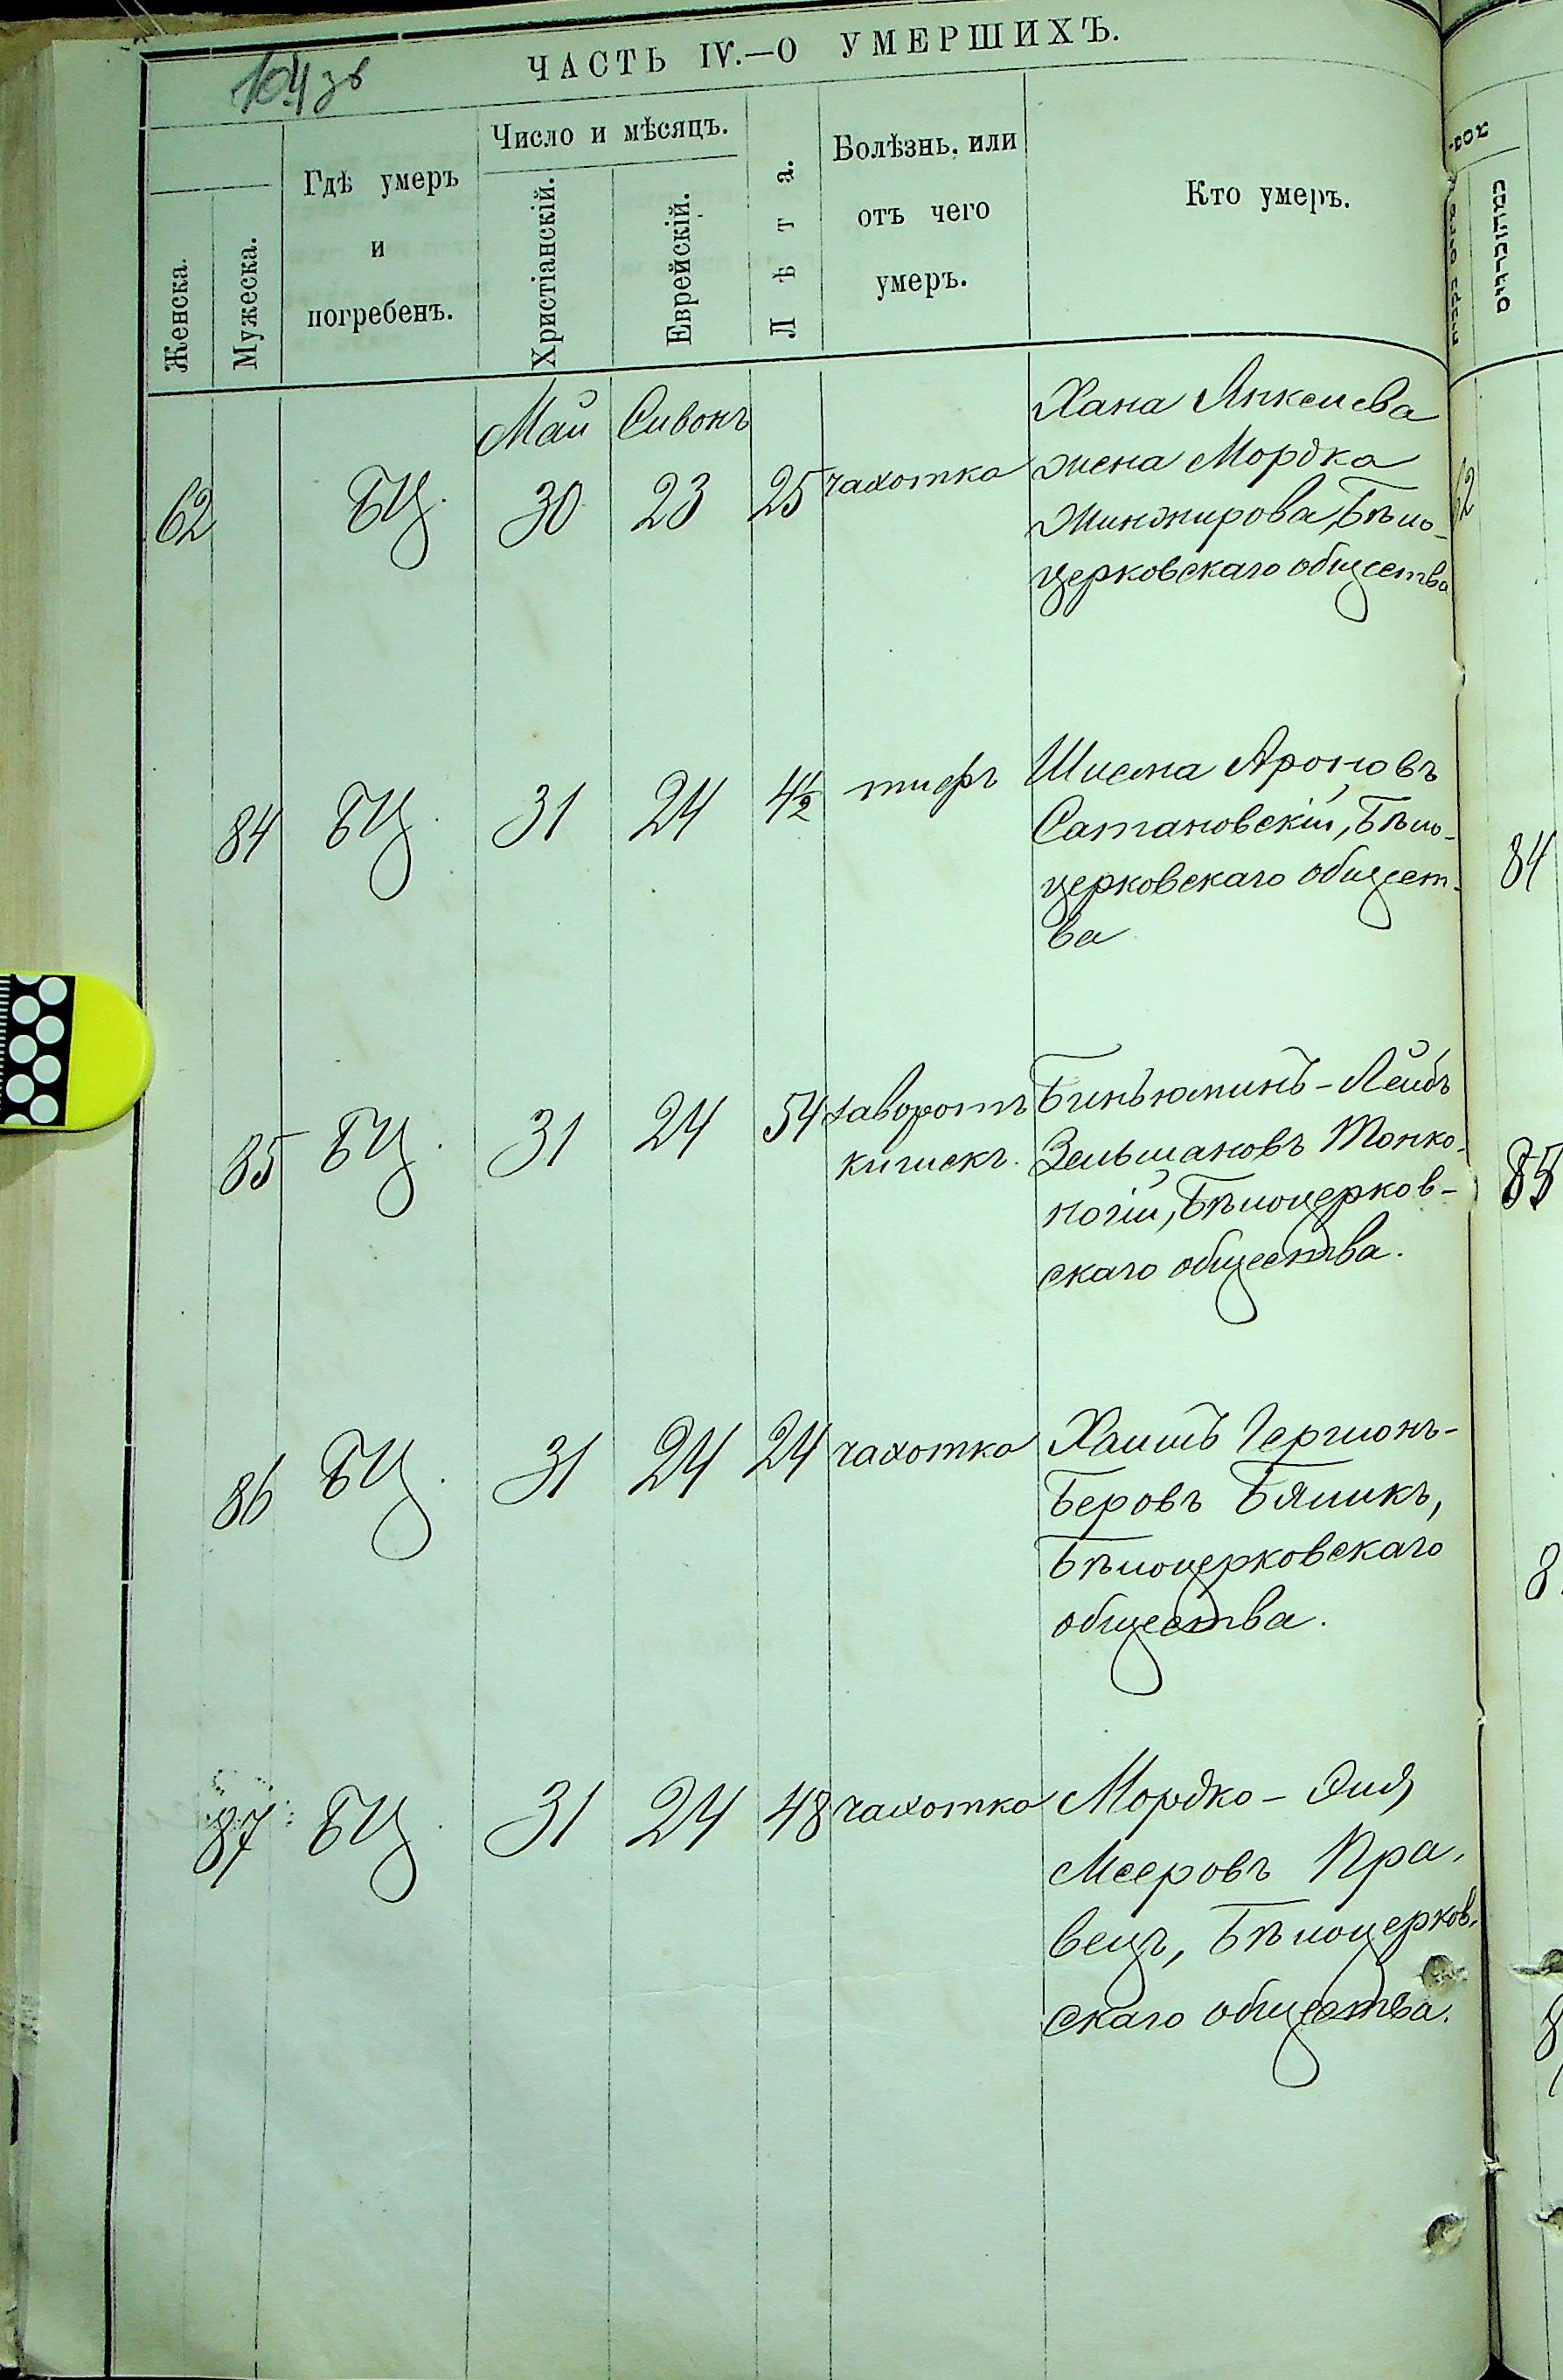 104 зв
ЧАСТЬ IV.—О УМЕРШИХЪ.
Женска.
Мужеска.
Гдѣ умеръ
и
погребенъ.
Число и мѣсяцъ.
Христіанскій.
Еврейскій.
Лѣта.
Болѣзнь, или
отъ чего
умеръ.
Кто умеръ.
Май Сивонъ
62 БЦ. 30 23 25 чахотка
Хана Янкелева
жена Мордка
Жинжирова, Бѣло-
церковскаго общества
62
84 БЦ. 31 24 4½ тифъ
Шлема Ароновъ
Сатановскій, Бѣло-
церковскаго общест-
ва
84
85 БЦ. 31 24 54 заворотъ
кишекъ.
Биньюминъ-Лейбъ
Зельмановъ Тонко-
ногій, Бѣлоцерков-
скаго общества.
85
86 БЦ. 31 24 24 чахотка
Хаимъ Гершонъ-
Беровъ Бяликъ,
Бѣлоцерковскаго
общества.
87 БЦ. 31 24 48 чахотка
Мордко-Эля
Мееровъ Кра-
вецъ, Бѣлоцерков-
скаго общества.